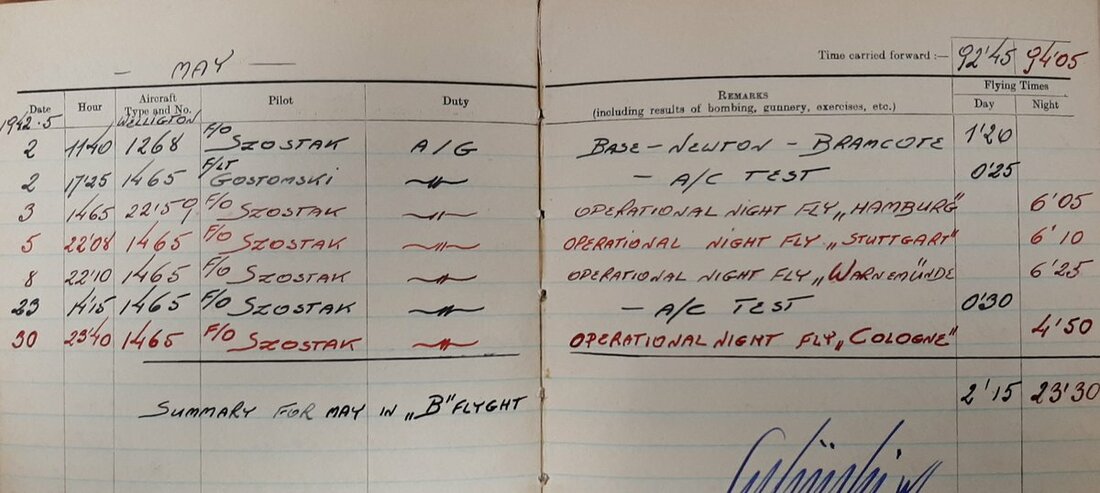 Time carried forward :— 92'45 94'05
— MAY —
Date Hour Aircraft Type and No. Pilot Duty REMARKS (including results of bombing, gunnery, exercises, etc.) Flying Times Day Night
1942.5 WELLIGTON
2 11'40 1268 F/O SZOSTAK A/G BASE - NEWTON - BRAMCOTE 1'20
2 17'25 1465 F/LT GOSTOMSKI —"— — A/C TEST 0'25
3 1465 22'59 F/O SZOSTAK —"— OPERATIONAL NIGHT FLY „HAMBURG" 6'05
5 22'08 1465 F/O SZOSTAK —"— OPERATIONAL NIGHT FLY „STUTTGART" 6'10
8 22'10 1465 F/O SZOSTAK —"— OPERATIONAL NIGHT FLY „WARNEMÜNDE 6'25
23 14'15 1465 F/O SZOSTAK —"— — A/C TEST 0'30
30 23'40 1465 F/O SZOSTAK —"— OPERATIONAL NIGHT FLY „COLOGNE" 4'50
SUMMARY FOR MAY IN „B" FLYGHT 2'15 23'30